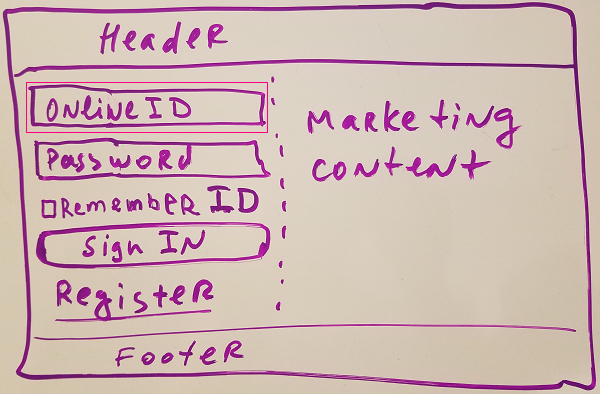 Header
Online ID
Password
Remember ID
Sign IN
Register
Marketing
content
Footer